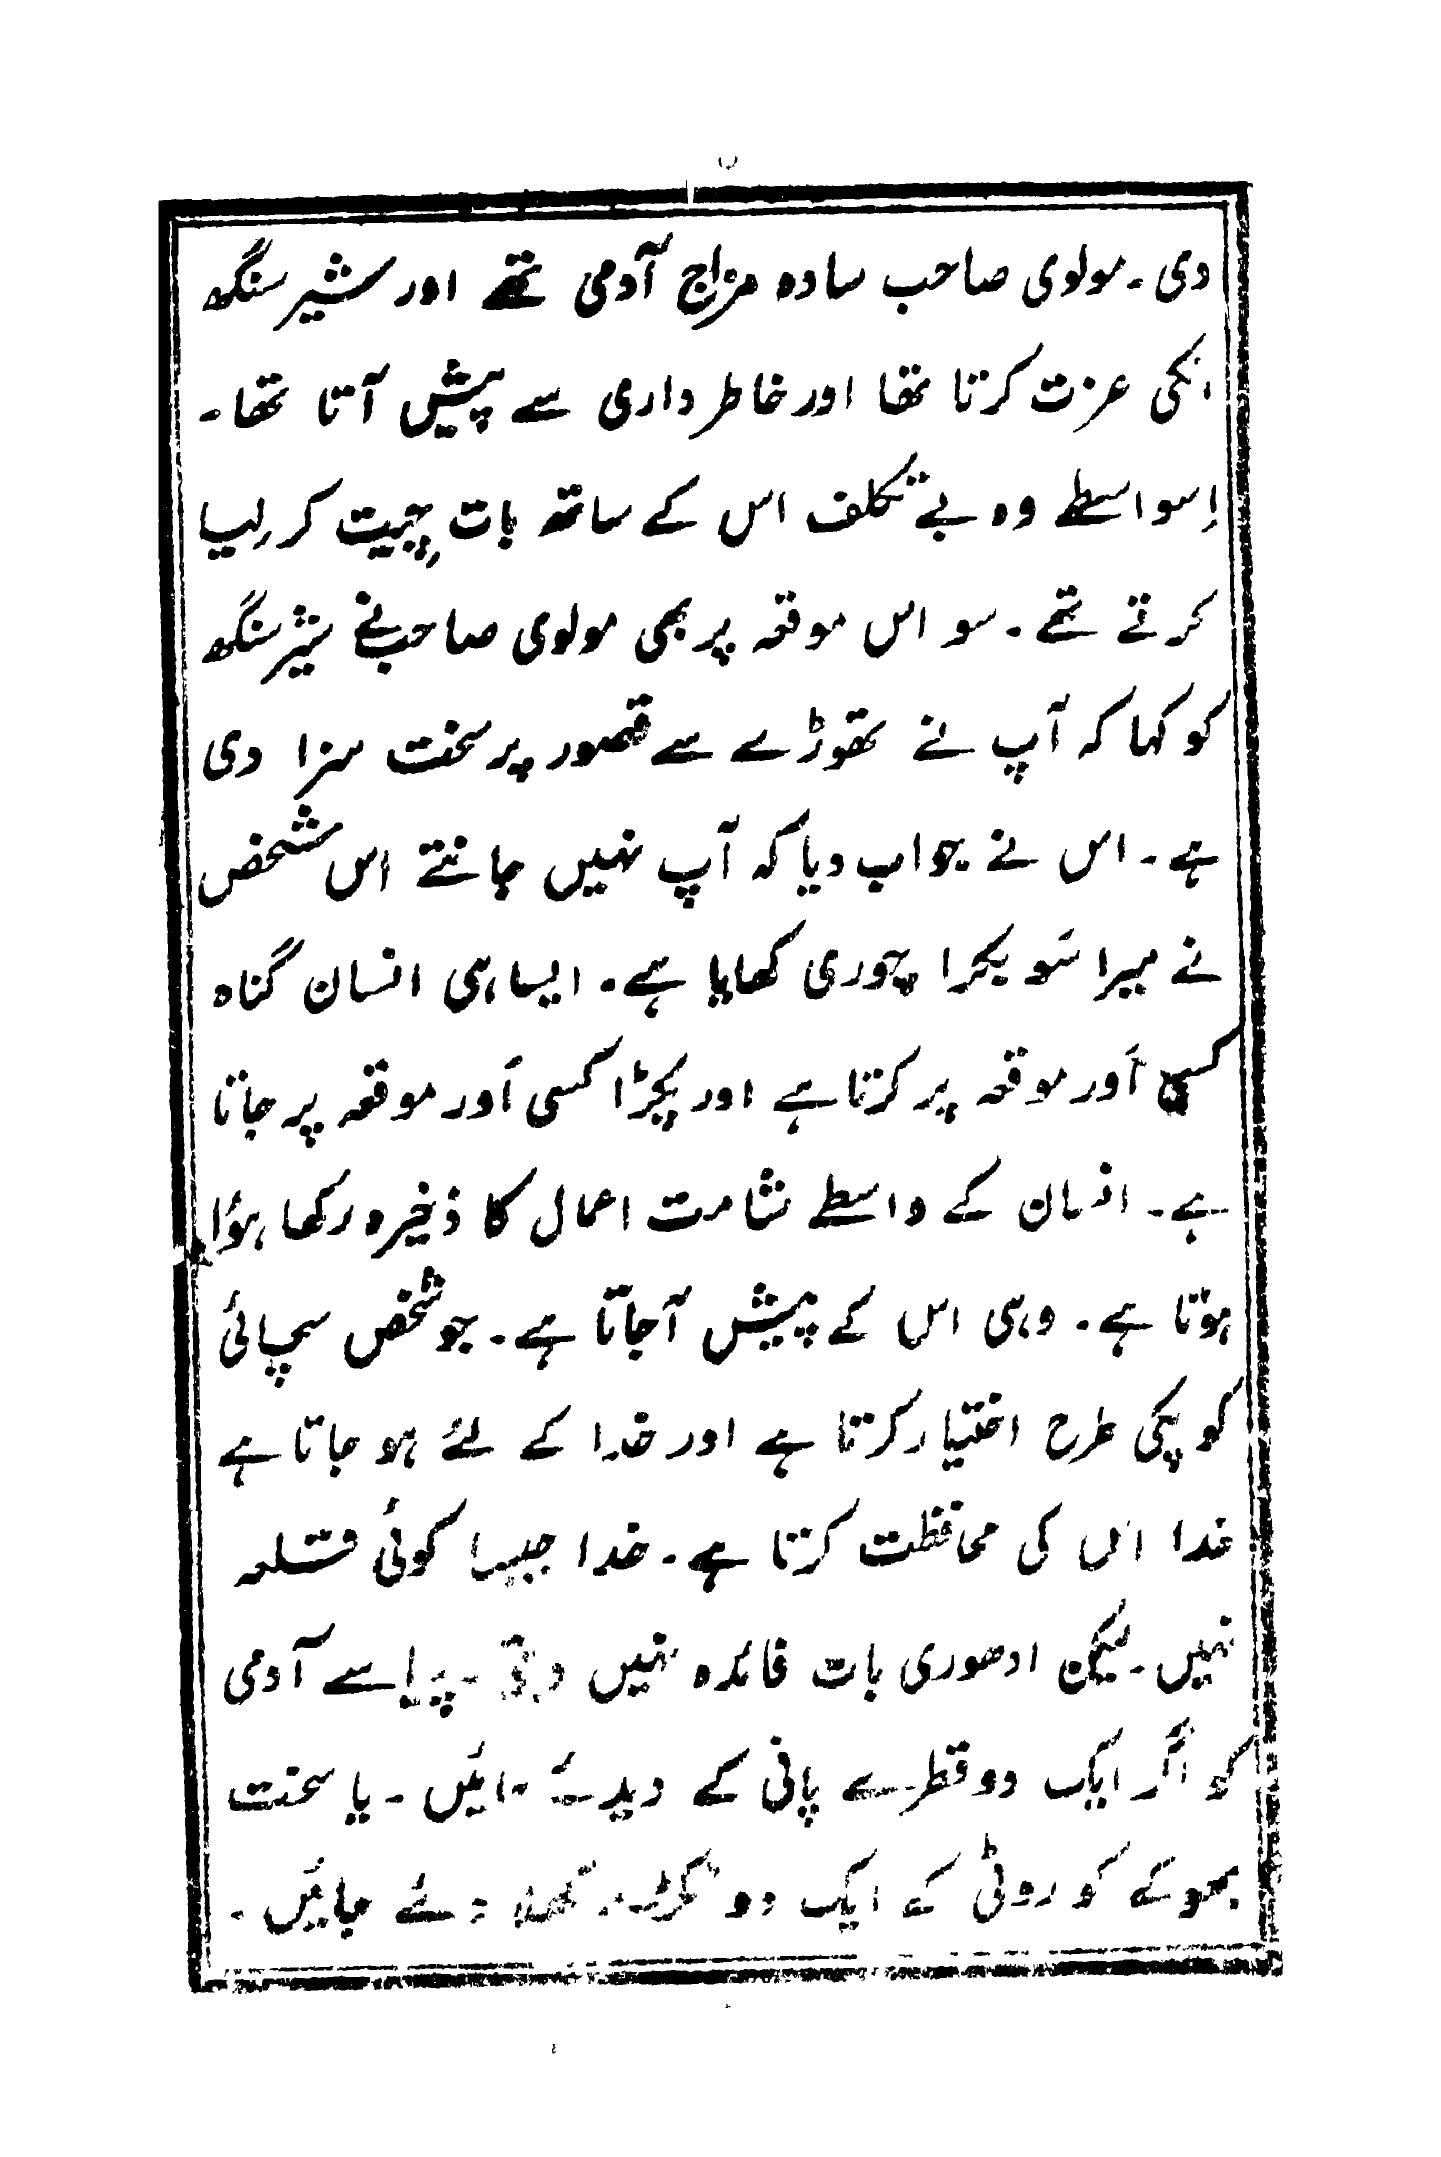 دی۔ مولوی صاحب سادہ مزاج آدمی تھے اور شیر سنگھ
انکی عزت کرتا تھا اور خاطر داری سے پیش آتا تھا۔
اِسواسطے وہ بے تکلف اس کے ساتھ بات چیت کر لیا
کرتے تھے۔ سو اس موقعہ پر بھی مولوی صاحب نے شیر سنگھ
کو کہا کہ آپ نے تھوڑے سے قصور پر سخت سزا دی
ہے۔ اس نے جواب دیا کہ آپ نہیں جانتے اس شخص
نے میرا سَو بکرا چوری کھایا ہے۔ ایسا ہی انسان گناہ
کسی اَور موقعہ پر کرتا ہے اور پکڑا کسی اَور موقعہ پر جاتا
ہے۔ انسان کے واسطے شامت اعمال کا ذخیرہ رکھا ہؤا
ہوتا ہے۔ وہی اس کے پیش آجاتا ہے۔ جو شخص سچائی
کو پکی طرح اختیار کرتا ہے اور خدا کے لئے ہو جاتا ہے
خدا اس کی محافظت کرتا ہے۔ خدا جیسا کوئی قلعہ
نہیں۔ لیکن ادھوری بات فائدہ نہیں دیتی۔ پیاسے آدمی
کو اگر ایک دو قطرے پانی کے دیدئے جائیں۔ یا سخت
بھوکے کو روٹی کے ایک دو ٹکڑے دئے جائیں۔